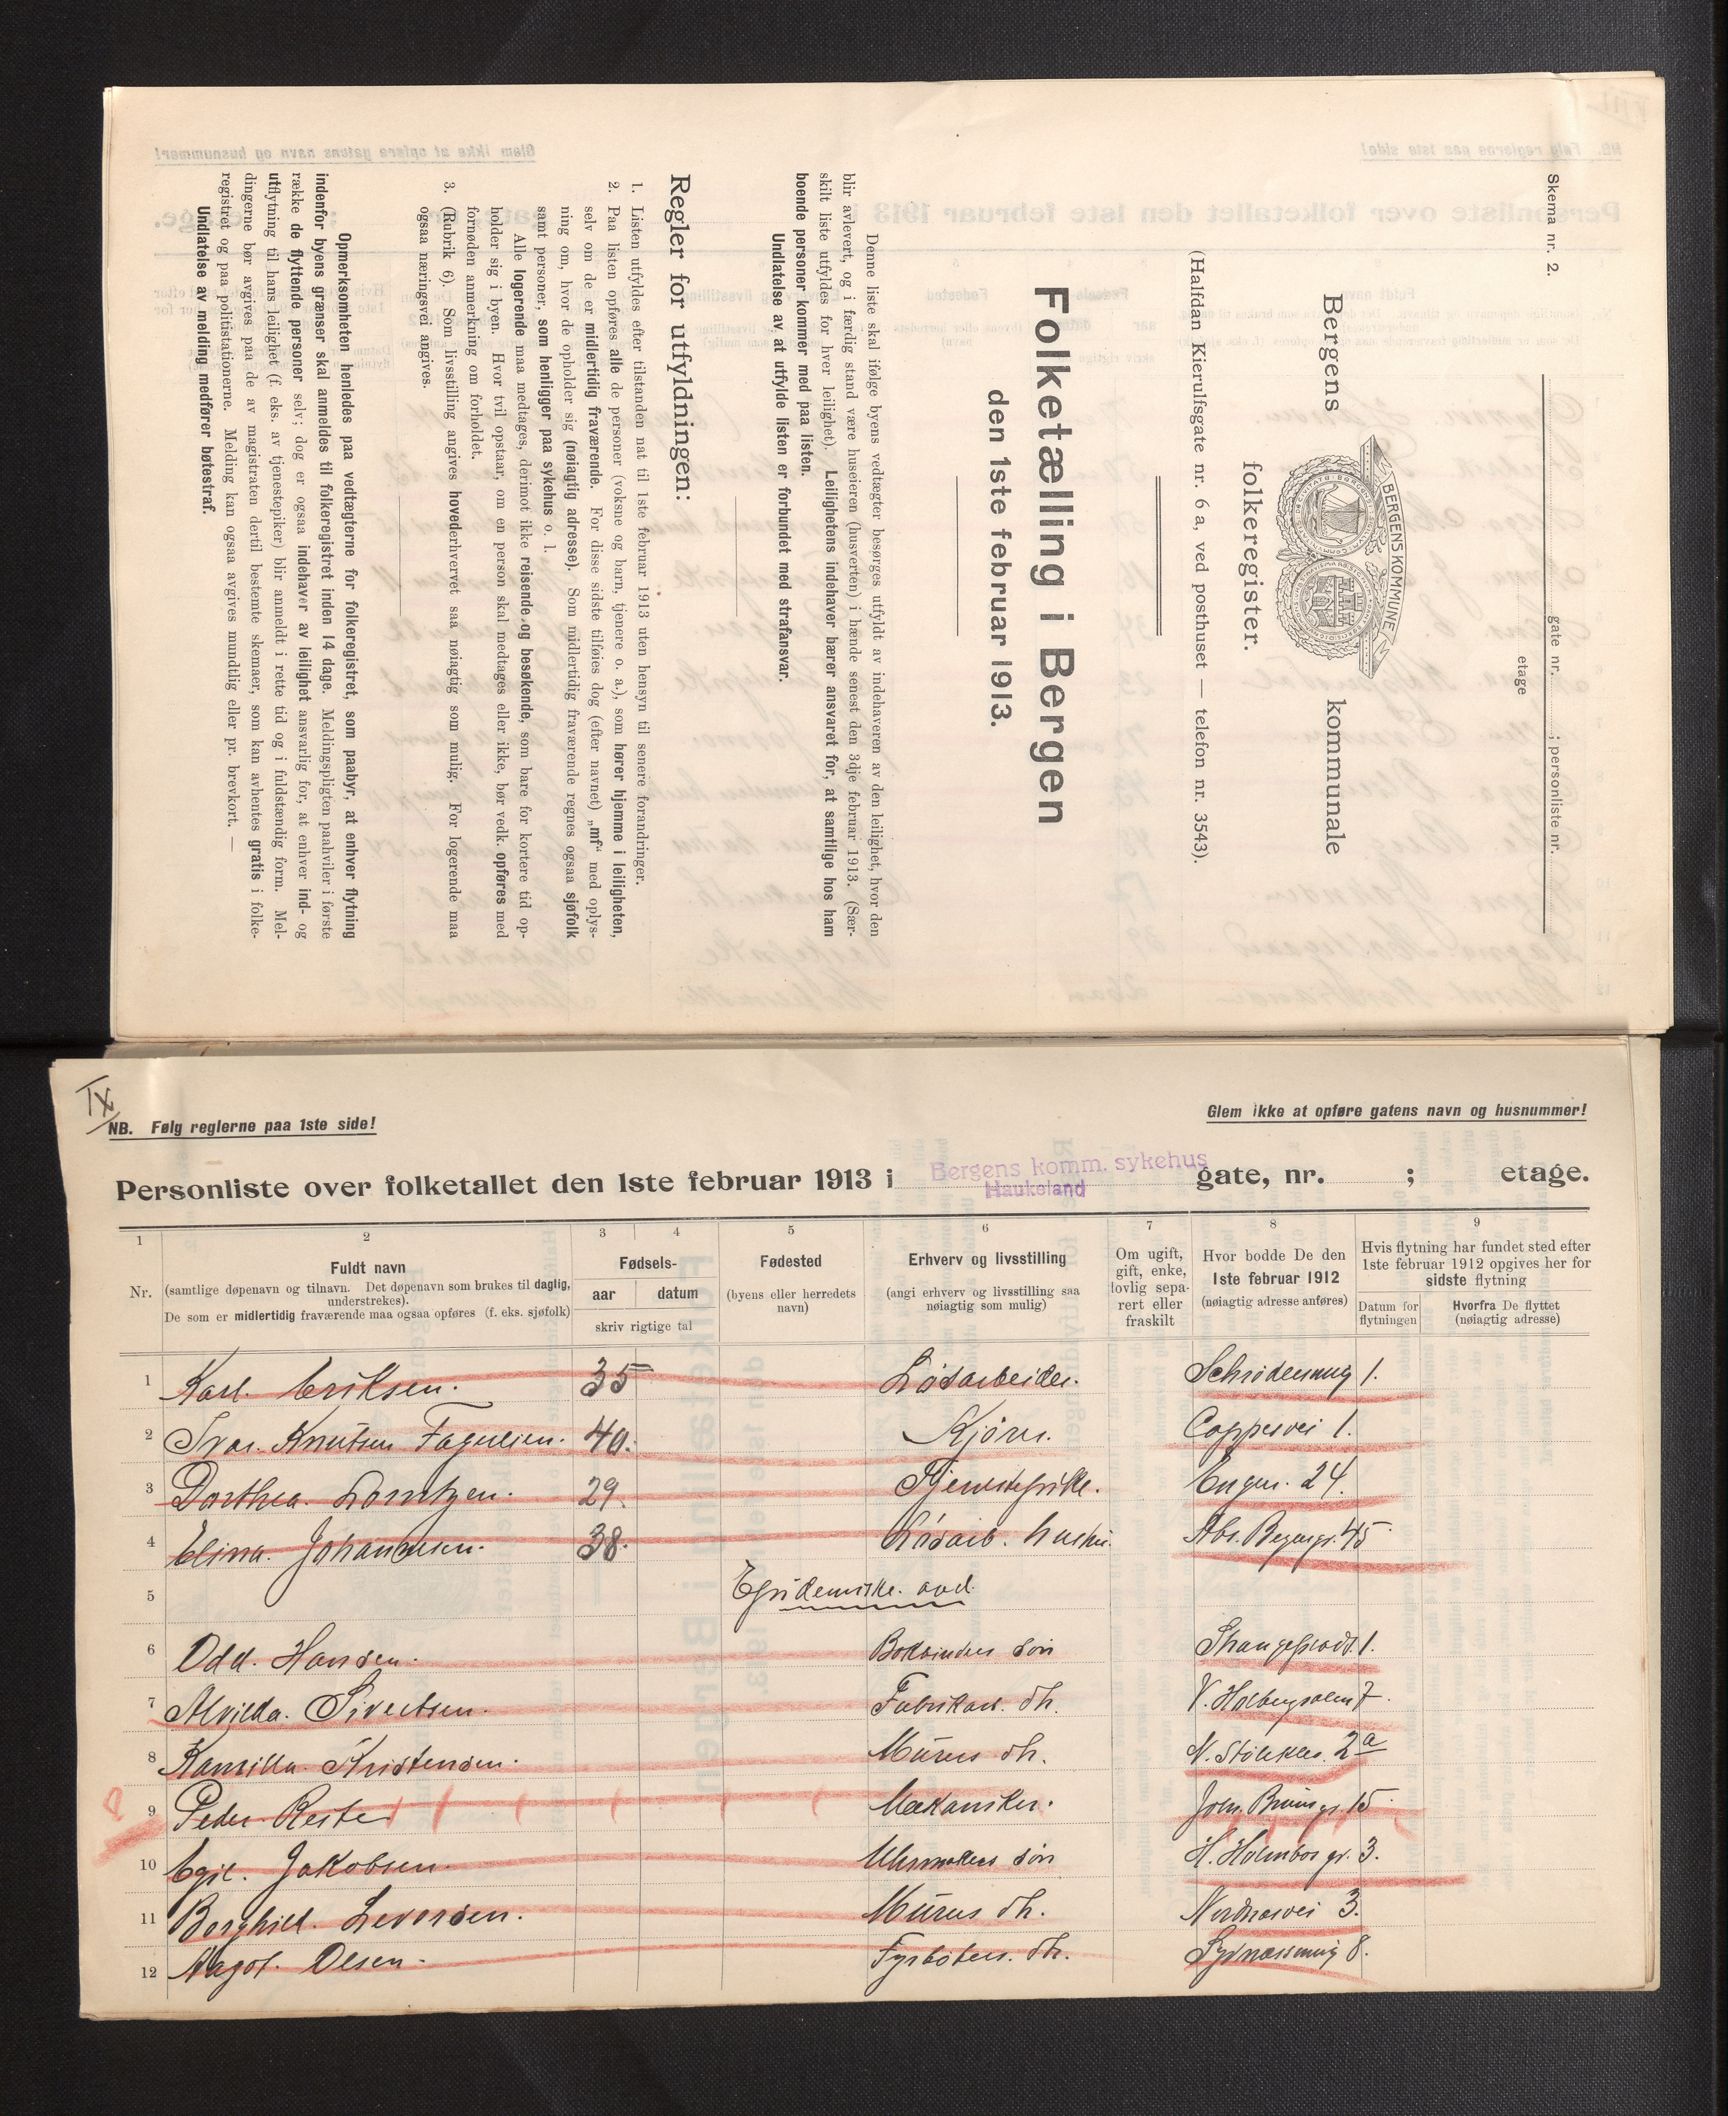 Skema nr. 2.
gate nr. ; personliste nr.
etage
Bergens kommunale
BERGENS KOMMUNE
folkeregister.
(Halfdan Kierulfsgate nr. 6 a, ved posthuset — telefon nr. 3543).
Folketælling i Bergen
den 1ste februar 1913.
Denne liste skal ifølge byens vedtægter besørges utfyldt av indehaveren av den leilighet, hvor den
blir avlevert, og i færdig stand være huseieren (husverten) i hænde senest den 3dje februar 1913. (Sær-
skilt liste utfyldes for hver leilighet). Leilighetens indehaver bærer ansvaret for, at samtlige hos ham
boende personer kommer med paa listen.
Undlatelse av at utfylde listen er forbundet med strafansvar.
Regler for utfyldningen:
1. Listen utfyldes efter tilstanden nat til 1ste februar 1913 uten hensyn til senere forandringer.
2. Paa listen opføres alle de personer (voksne og barn, tjenere o. a.), som hører hjemme i leiligheten,
selv om de er midlertidig fraværende. For disse sidste tilføies dog (efter navnet) „mf“ med oplys-
ning om, hvor de opholder sig (nøiagtig adresse). Som midlertidig fraværende regnes ogsaa sjøfolk
samt personer, som henligger paa sykehus o. l.
Alle logerende maa medtages, derimot ikke reisende og besøkende, som bare for kortere tid op-
holder sig i byen. Hvor tvil opstaar, om en person skal medtages eller ikke, bør vedk. opføres med
fornøden anmerkning om forholdet.
3. (Rubrik 6). Som livsstilling angives hovederhvervet saa nøiagtig som mulig. For logerende maa
ogsaa næringsvei angives.
Opmerksomheten henledes paa vedtægterne for folkeregistret, som paabyr, at enhver flytning
indenfor byens grænser skal anmeldes til folkeregistret inden 14 dage. Meldingspligten paahviler i første
række de flyttende personer selv; dog er ogsaa indehaver av leilighet ansvarlig for, at enhver ind- og
utflytning til hans leilighet (f. eks. av tjenestepiker) blir anmeldt i rette tid og i fuldstændig form. Mel-
dingerne bør avgives paa de av magistraten dertil bestemte skemaer, som kan avhentes gratis i folke-
registret og paa politistationerne. Melding kan ogsaa avgives mundtlig eller pr. brevkort. —
Undlatelse av melding medfører bøtestraf.
IX
NB. Følg reglerne paa 1ste side!
Glem ikke at opføre gatens navn og husnummer!
Personliste over folketallet den 1ste februar 1913 i Bergens komm. sykehus gate, nr. ; etage.
Haukeland
1 2 3 4 5 6 7 8 9
Nr.
Fuldt navn
(samtlige døpenavn og tilnavn. Det døpenavn som brukes til daglig,
understrekes).
De som er midlertidig fraværende maa ogsaa opføres (f. eks. sjøfolk)
Fødsels-
aar datum
skriv rigtige tal
Fødested
(byens eller herredets
navn)
Erhverv og livsstilling
(angi erhverv og livsstilling saa
nøiagtig som mulig)
Om ugift,
gift, enke,
lovlig sepa-
rert eller
fraskilt
Hvor bodde De den
1ste februar 1912
(nøiagtig adresse anføres)
Hvis flytning har fundet sted efter
1ste februar 1912 opgives her for
sidste flytning
Datum for
flytningen
Hvorfra De flyttet
(nøiagtig adresse)
1 Karl. Eriksen. 35 Løsarbeider. Schrødersmug 1.
2 Ivar. Knutsen 40. Kjører. Coppesvei 1.
3 Dorthea. Lorntzen. 29. Tjenestepike. Engen. 24.
4 Elina. Johannesen. 38. Løsarb. hustru. Abs. Beyersgt. 45
5 Epidemiske. avd.
6 Odd. Hansen. Bokbinders søn Strangebrodt. 1.
7 Alvilda. Sivertsen. Fabrikarb. dtr. V. Holbergsalm 7.
8 Kamilla. Kristensen. Murers dtr. N. Stølekleiv. 2a
9 Peder Mekaniker. John. Bruns gt. 15.
10 Egil. Jakobsen. Uhrmakers søn H. Holmboes gt. 3.
11 Borghild. Leversen. Murers dtr. Nordnæsvei 3.
12 Magot. Olsen. Fyrbøters. dtr. Sydnæssmug 8.